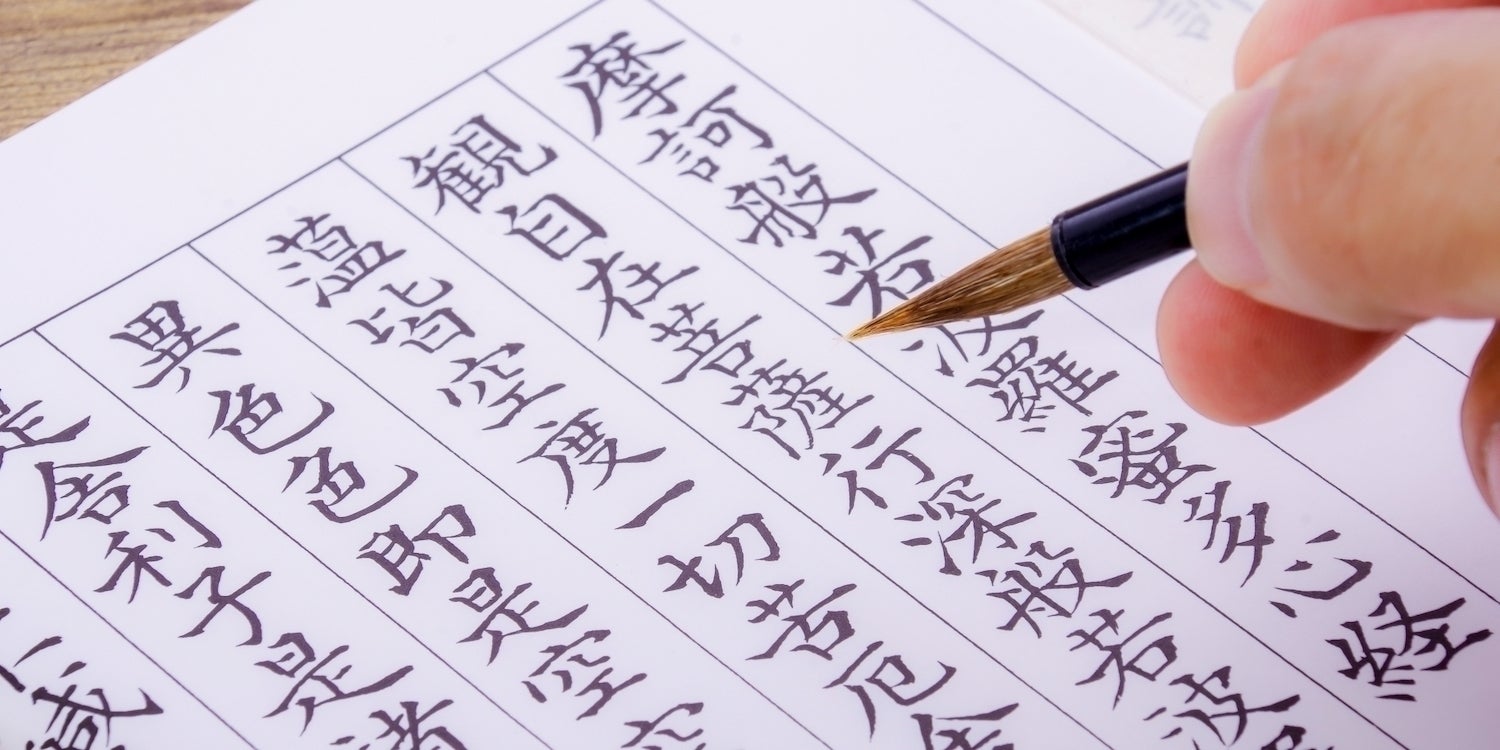 摩訶般若波羅蜜多心経
観自在菩薩行深般若波
蘊皆空度一切苦厄舎
異色色即是空空
是舎利子是諸
減